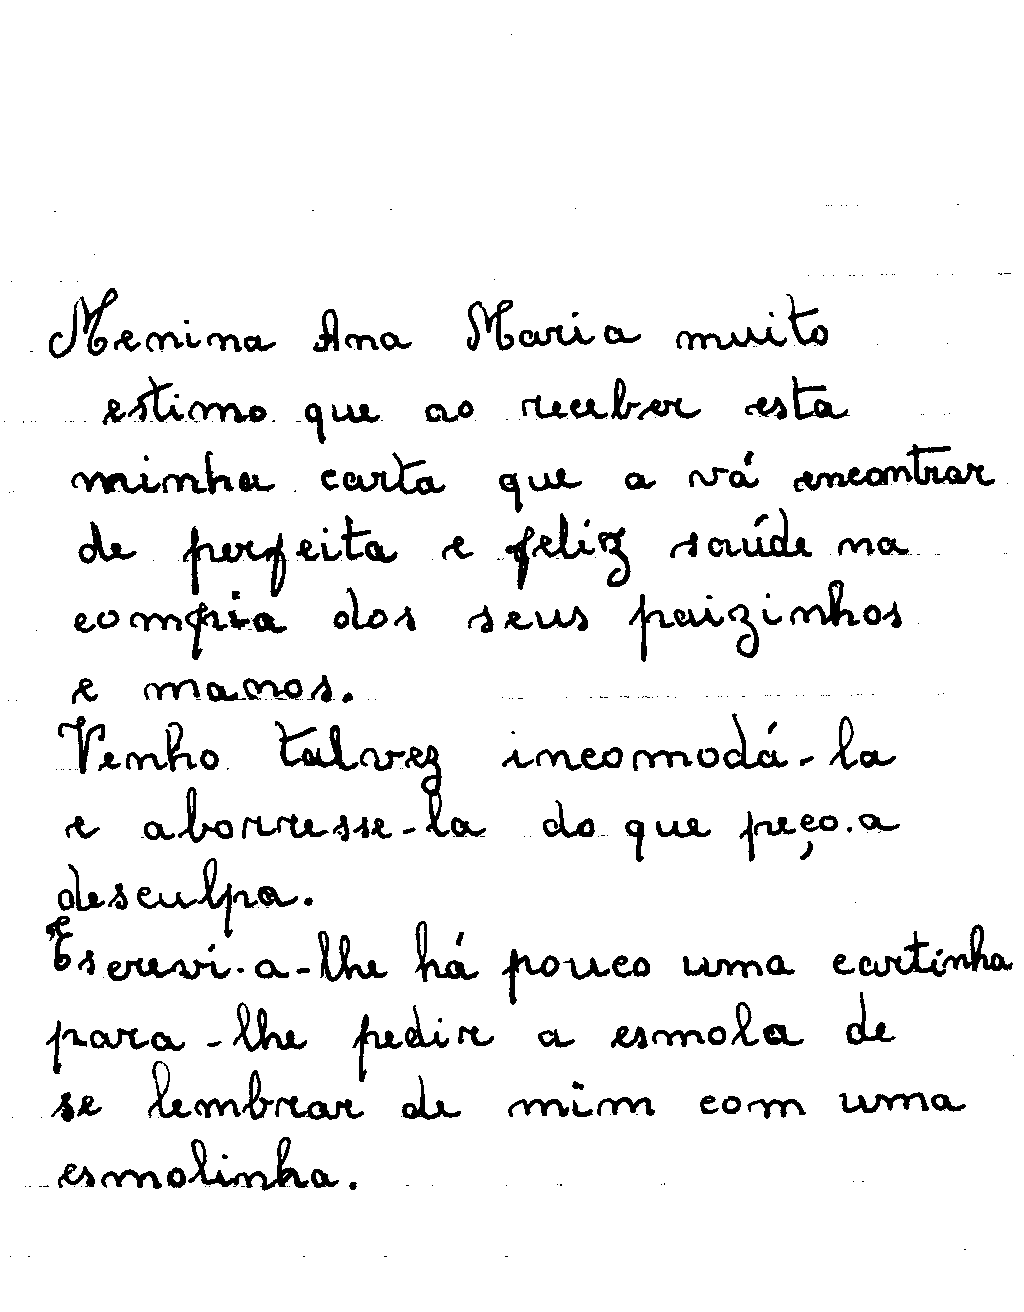 Menina Ana Maria muito
estimo que ao receber esta
minha carta que a vá encontrar
de perfeita e feliz saúde na
compia dos seus paizinhos
e manos.
Venho talvez incomodá-la
e aborresse-la do que peço.a
desculpa.
Escrevi-a-lhe há pouco uma cartinha
para-lhe pedir a esmola de
se lembrar de mim com uma
esmolinha.